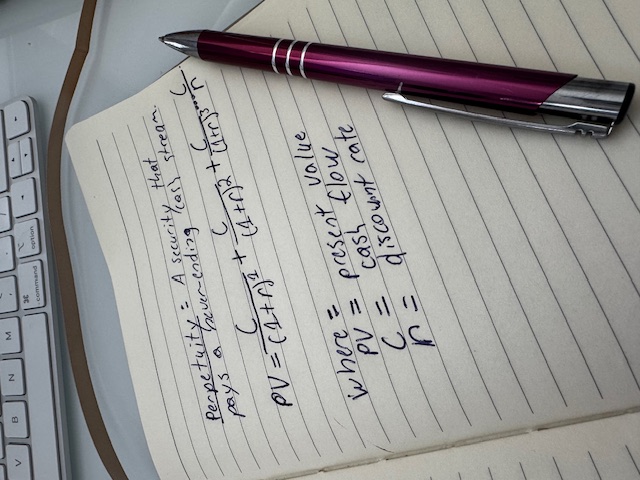 Perpetuity = A security that
pays a never-ending cash stream.
PV = C/(1+r)^1 + C/(1+r)^2 + C/(1+r)^3 ... C/r
where =
PV = present value
C = cash flow
r = discount rate
option
⌘ command
M
N
B
V